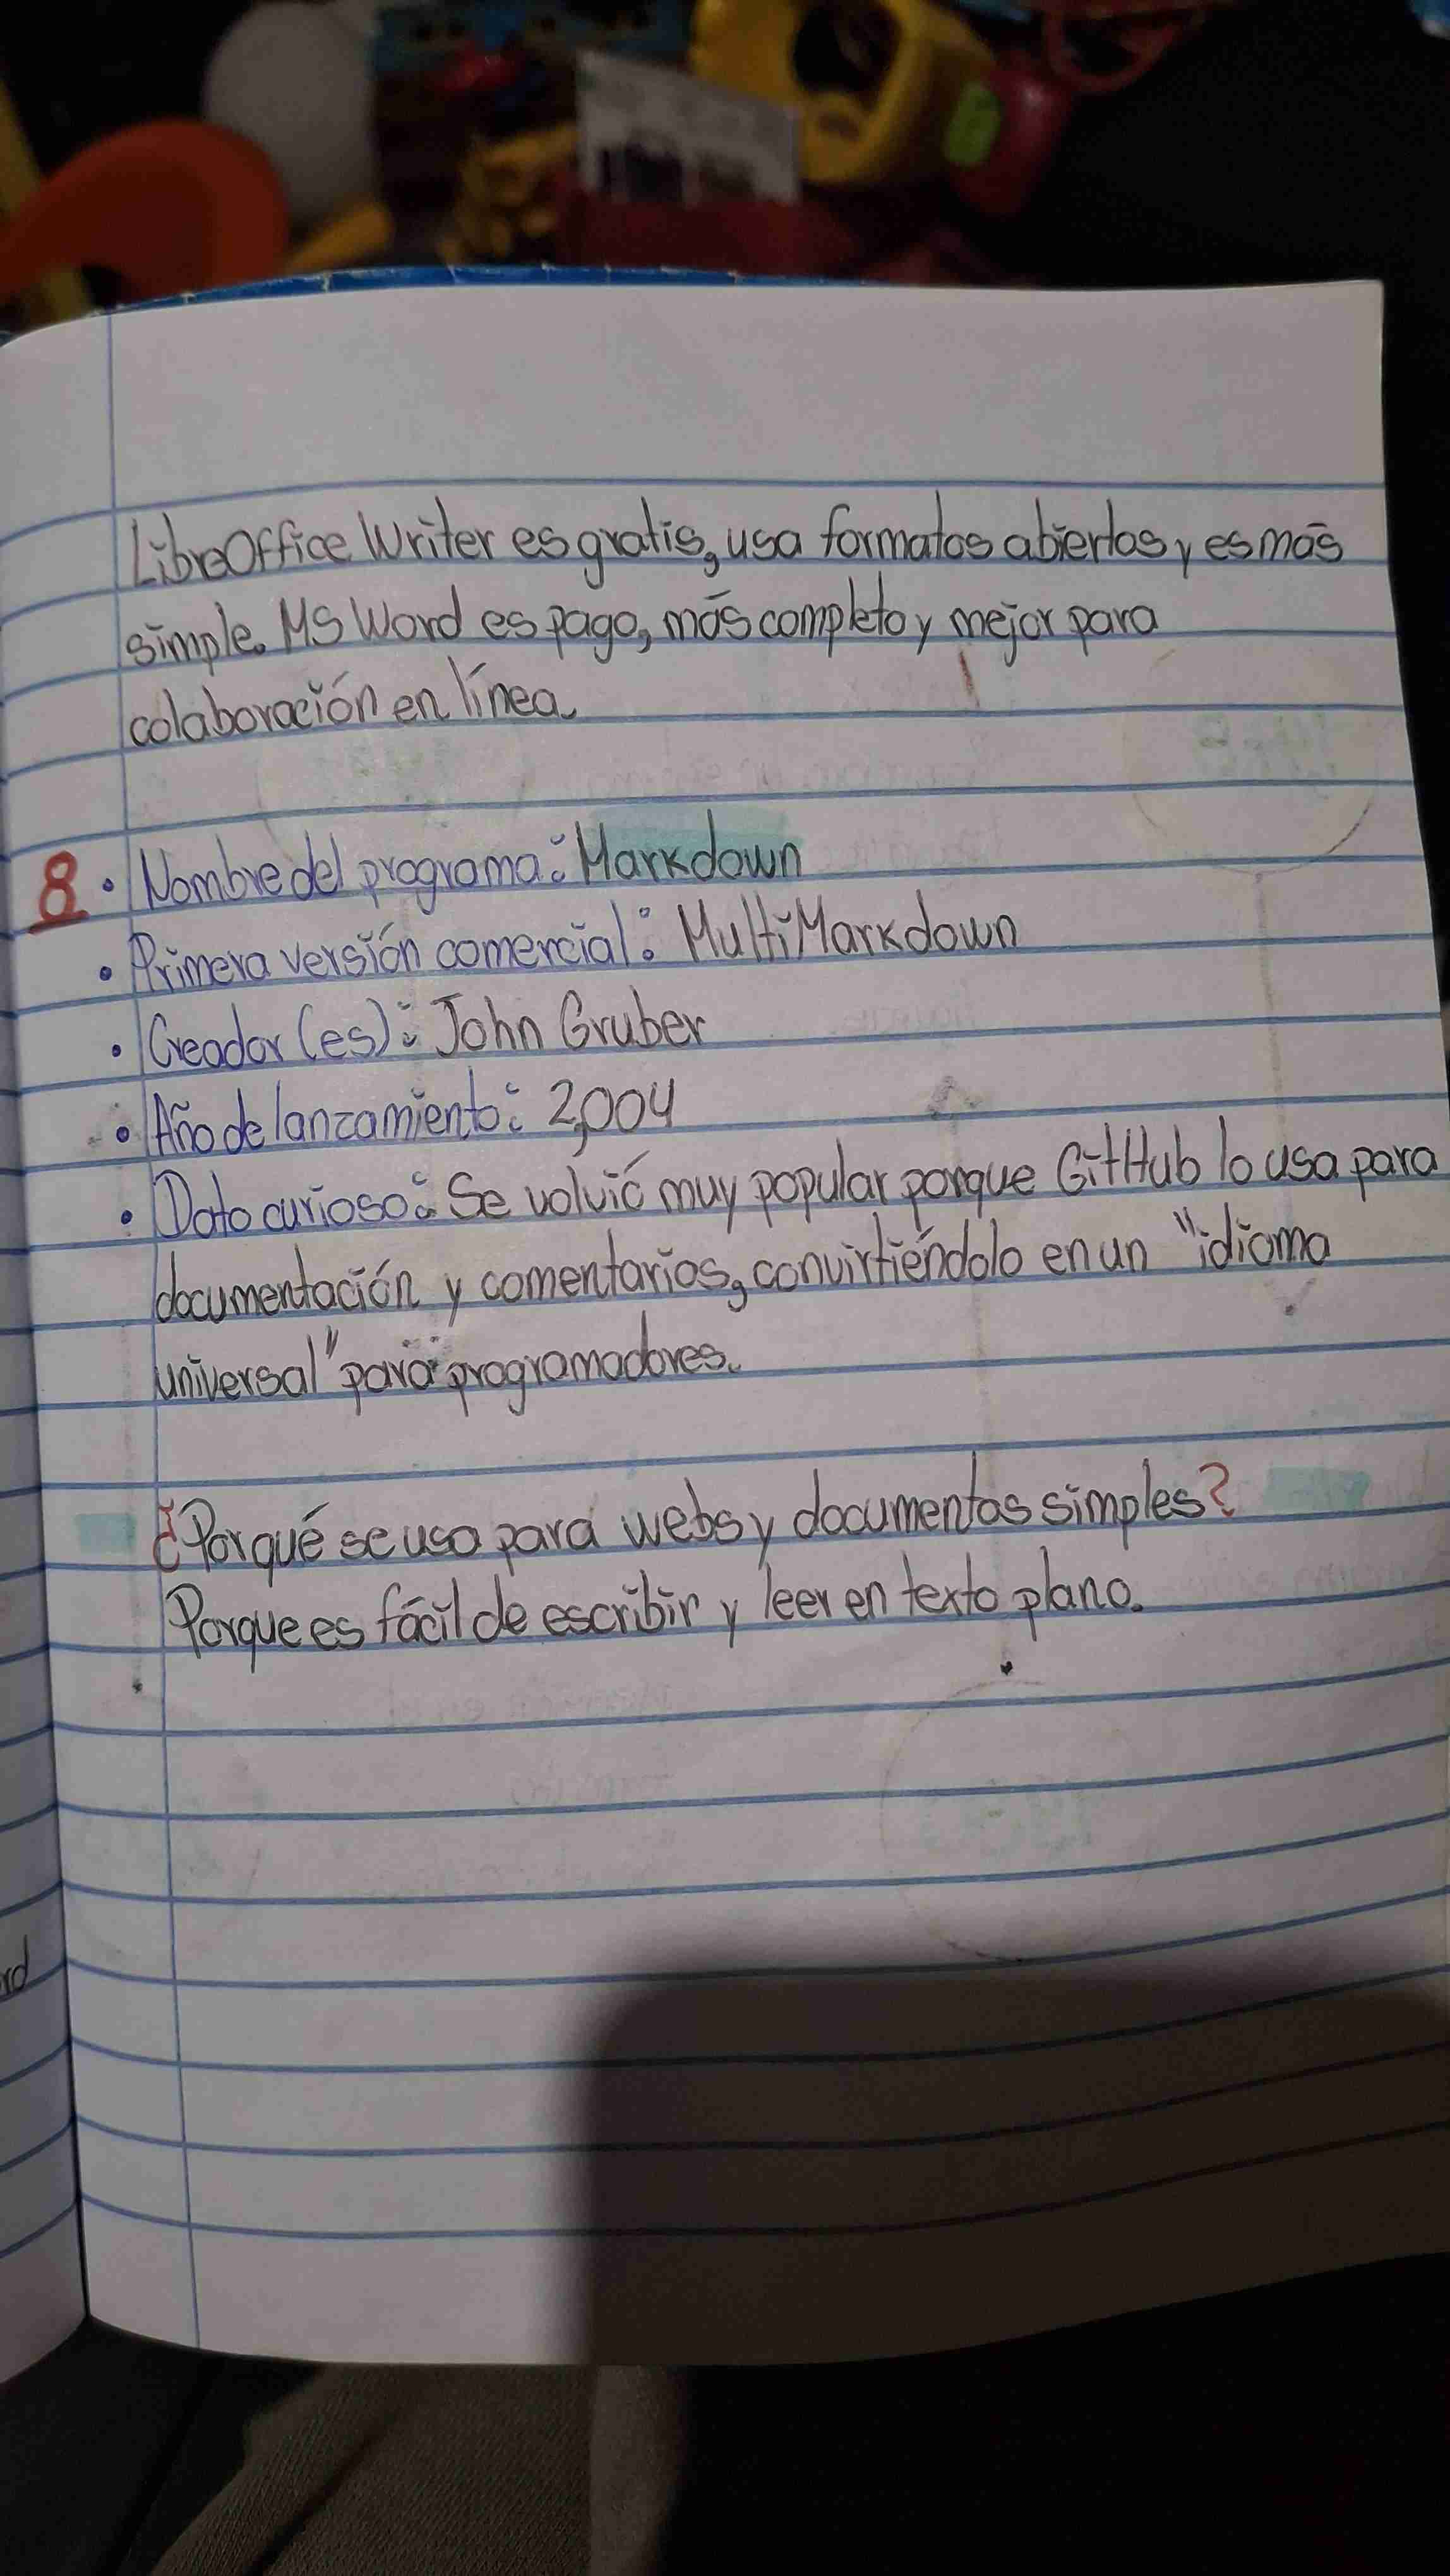 LibreOffice Writer es gratis, usa formatos abiertos y es más
simple. MS Word es pago, más completo y mejor para
colaboración en línea.
8. Nombre del programa: Markdown
• Primera versión comercial: MultiMarkdown
• Creador (es): John Gruber
• Año de lanzamiento: 2,004
• Dato curioso: Se volvió muy popular porque GitHub lo usa para
documentación y comentarios, convirtiéndolo en un "idioma
universal" para programadores.
¿Por qué se usa para webs y documentos simples?
Porque es fácil de escribir y leer en texto plano.
rd